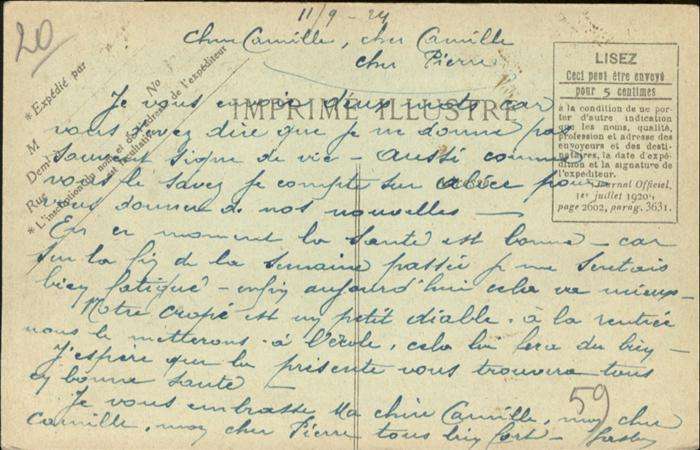 20
11/9-24
Chère Camille, cher Camille
cher Pierre
IMPRIMÉ ILLUSTRÉ
* Expédié par
M
Dem
Rue
No
* L'inscription du nom et de l'adresse de l'expéditeur est facultative
LISEZ
Ceci peut être envoyé
pour 5 centimes
à la condition de ne por-
ter d'autre indication
que les noms, qualité,
profession et adresse des
envoyeurs et des desti-
nataires, la date d'expé-
dition et la signature de
l'expéditeur.
Journal Officiel,
1er juillet 1920,
page 2602, parag. 3631.
Je vous envoie deux mots car
vous devez dire que je ne donne pas
souvent signe de vie - aussi comme
vous le savez je compte sur Alice pour
vous donner de nos nouvelles -
En ce moment la santé est bonne - car
sur la fin de la semaine passée je me sentais
bien fatigué - enfin aujourd'hui cela va mieux -
Notre crapé est un petit diable. à la rentrée
nous le metterons à l'école, cela lui fera du bien -
J'espère que la présente vous trouvera tous
en bonne santé -
Je vous embrasse ma chère Camille, mon cher
Camille, mon cher Pierre tous bien fort -
59